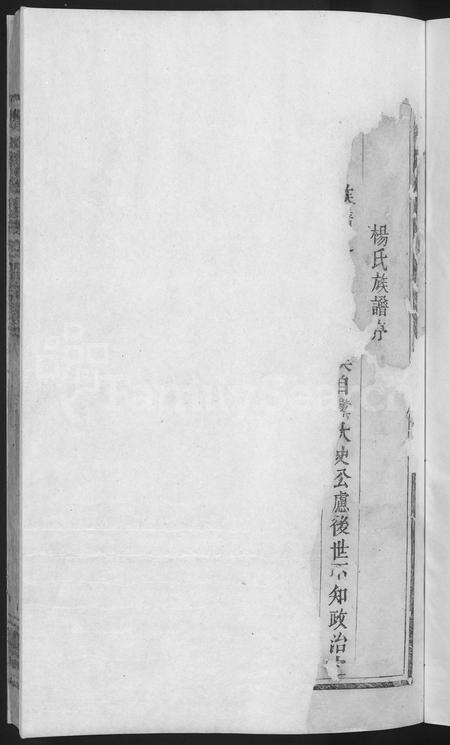 楊氏族譜序
族譜
自黨太史公慮後世不知政治
FamilySearch